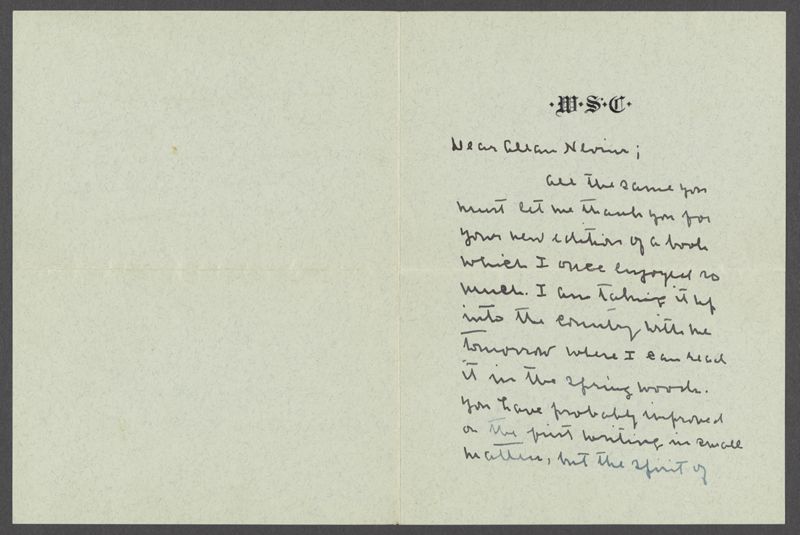 ·W·S·C·
Dear Allan Nevins;
All the same you
must let me thank you for
your new edition of a book
which I once enjoyed so
much. I am taking it up
into the country with me
tomorrow where I can read
it in the spring woods.
You have probably improved
on the first writing in small
matters, but the spirit of